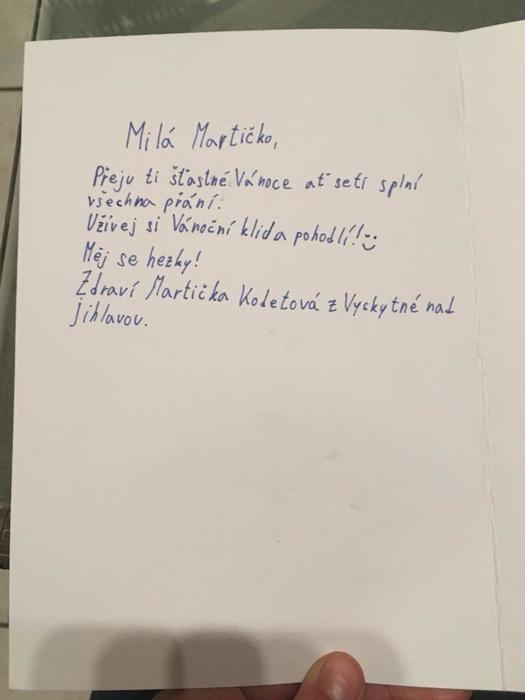 Milá Martičko,
Přeju ti šťastné Vánoce ať seti splní
všechna přání!
Užívej si Vánoční klida pohodlí! :)
Měj se hezky!
Zdraví Martička Kodetová z Vyskytné nad
Jihlavov.